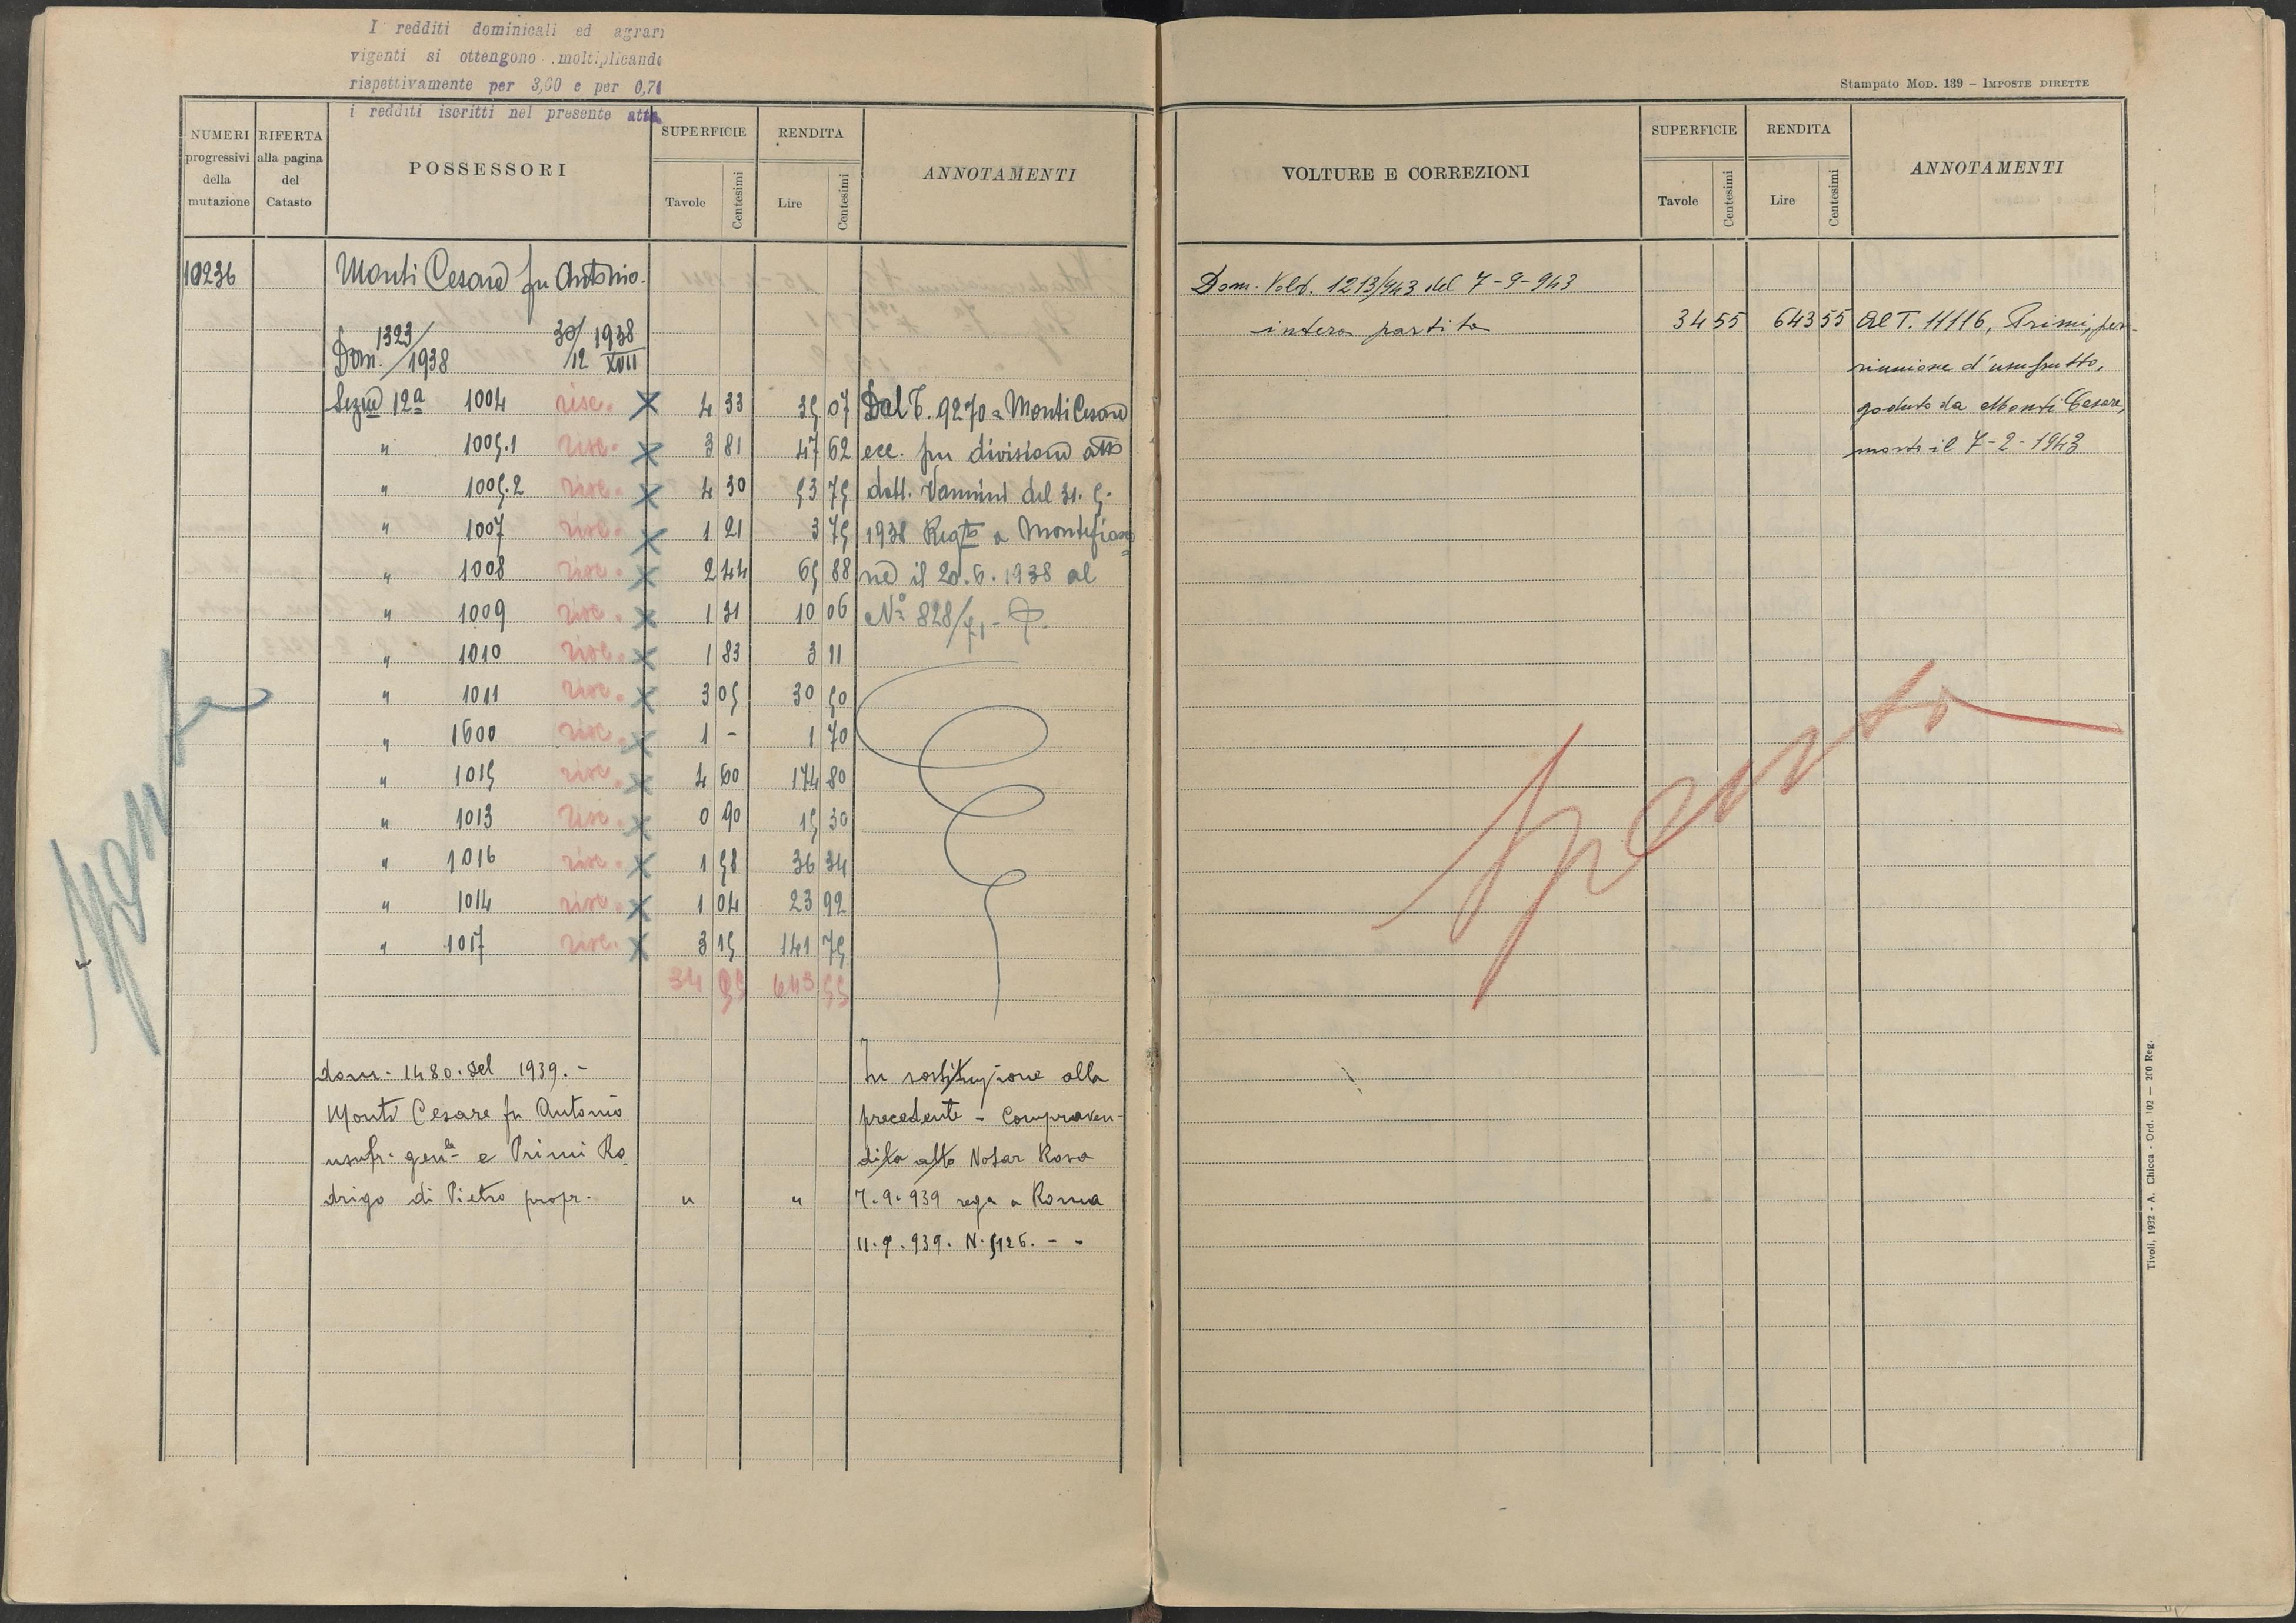 I redditi dominicali ed agrari
vigenti si ottengono moltiplicando
rispettivamente per 3,60 e per 0,71
i redditi iscritti nel presente atto
Stampato Mod. 139 – Imposte dirette
NUMERI progressivi della mutazione
RIFERTA alla pagina del Catasto
POSSESSORI
SUPERFICIE Tavole Centesimi
RENDITA Lire Centesimi
ANNOTAMENTI
10236 Monti Cesare fu Antonio.
Dom. 1323/1938 30/12 1938 XVII
Sezne 12a 1004 risc. X 4 33 35 07 Dal T. 9270 a Monti Cesare
" 1005.1 risc. X 3 81 47 62 ecc. per divisione atto
" 1005.2 risc. X 4 30 53 75 dott. Vannini del 31. 5.
" 1007 risc. X 1 21 3 75 1938 Regto a Montefiasco=
" 1008 risc. X 2 44 65 88 ne il 20.6.1938 al
" 1009 risc. X 1 31 10 06 No 828/71 -
" 1010 risc. X 1 83 3 11
" 1011 risc. X 3 05 30 50
" 1600 risc. X 1 - 1 70
" 1015 risc. X 4 60 174 80
" 1013 risc. X 0 90 15 30
" 1016 risc. X 1 58 36 34
" 1014 risc. X 1 04 23 92
" 1017 risc. X 3 15 141 75
34 55 643 55
dom. 1480. del 1939. - In sostituzione alla
Monti Cesare fu Antonio precedente - Compraven-
usufr. genle e Primi Ro dita atto Notar Rosa
drigo di Pietro propr. " " 7.9.939 rega a Roma
11.9.939. N. 5126. - -
spenta
VOLTURE E CORREZIONI
SUPERFICIE Tavole Centesimi
RENDITA Lire Centesimi
ANNOTAMENTI
Dom. Volt. 1213/943 del 7-9-943
intera partita 34 55 643 55 Al T. 11116, Primi, per
riunione d'usufrutto,
goduto da Monti Cesare,
morto il 7-2-1943
spenta
Tivoli, 1932 - A. Chicca - Ord. 102 — 200 Reg.